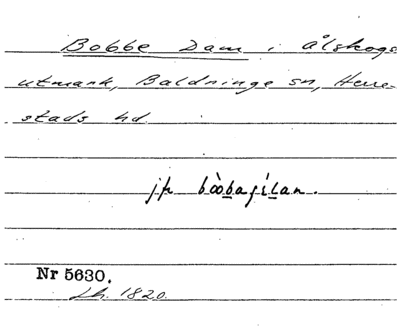 Bobbe Dam i Ålskogs
utmark, Baldringe sn, Herre-
stads hd.
jfr bòobagílan.
Nr 5630.
Lh. 1820.